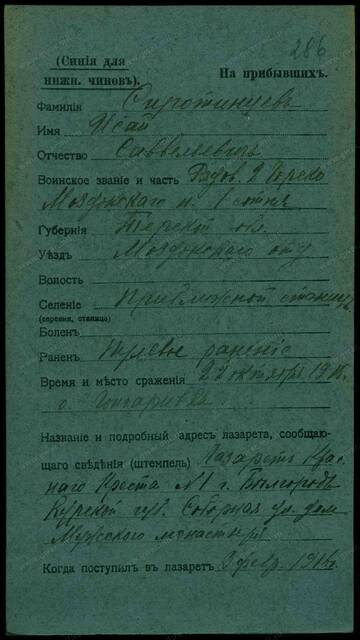 286
(Синія для
нижн. чиновъ).
На прибывшихъ.
Фамилія Сиротинцевъ
Имя Исай
Отчество Саввельевичъ
Воинское званіе и часть Рядов. 2 Горско
Моздокскаго п. 1 сотня
Губернія Терской обл.
Уѣздъ Моздокскаго отд
Волость
Селеніе Приближной станицы
(деревня, станица)
Боленъ
Раненъ пулевое раненіе
Время и мѣсто сраженія 22 октября 1915.
д. Гончаровка
Названіе и подробный адресъ лазарета, сообщаю-
щаго свѣдѣнія (штемпель) Лазаретъ Крас
наго Креста №1 г. Бѣлгородъ
Курской губ. Соборная ул. домъ
Мужскаго монастыря
Когда поступилъ въ лазаретъ 3 февр. 1916г.